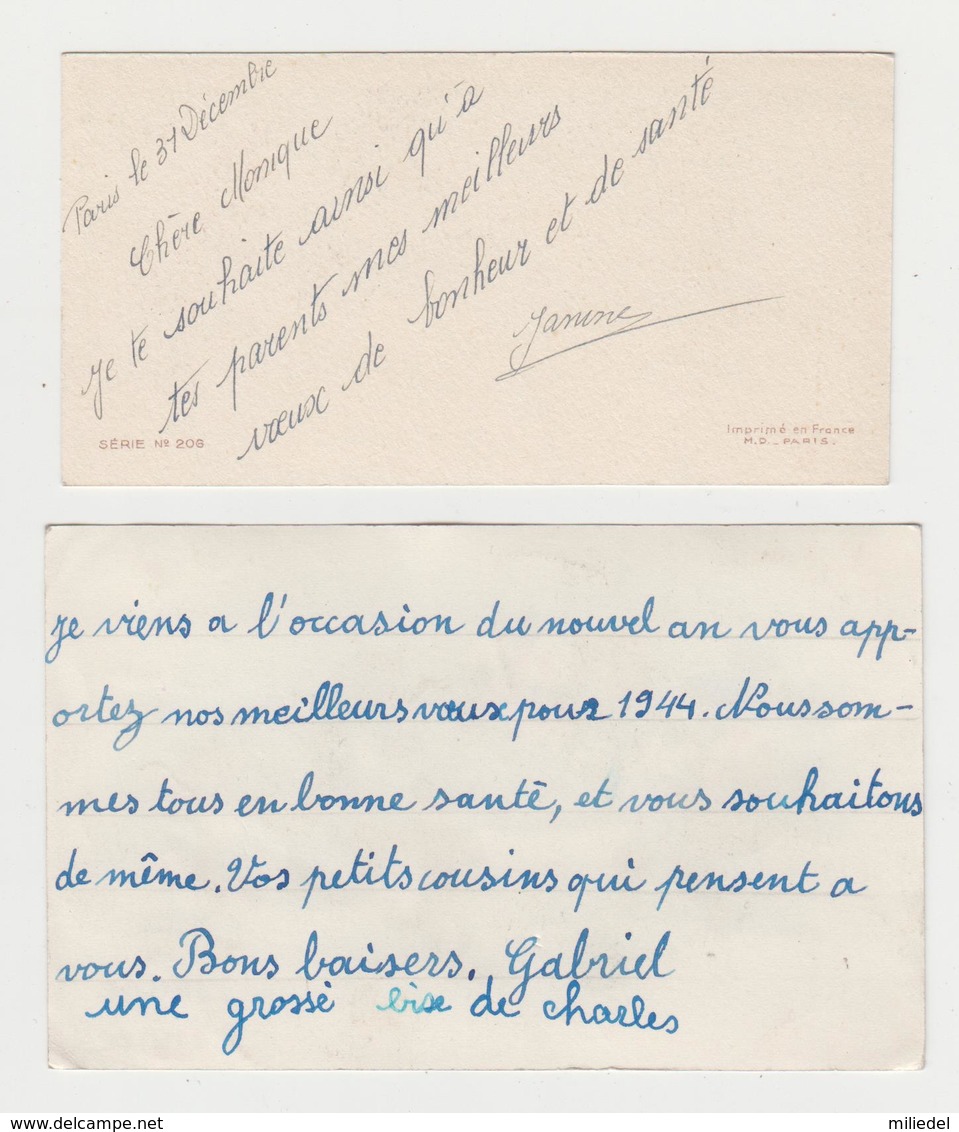 Paris le 31 Décembre
Chère Monique
Je te souhaite ainsi qu'à
tes parents mes meilleurs
vœux de bonheur et de santé
Janine
SÉRIE Nº 206
Imprimé en France
M.D._PARIS.
Je viens a l'occasion du nouvel an vous app-
ortez nos meilleurs vœux pour 1944. Nous som-
mes tous en bonne santé, et vous souhaitons
de même. Vos petits cousins qui pensent a
vous. Bons baisers. Gabriel
une grosse bise de charles
delcampe.net
milledel